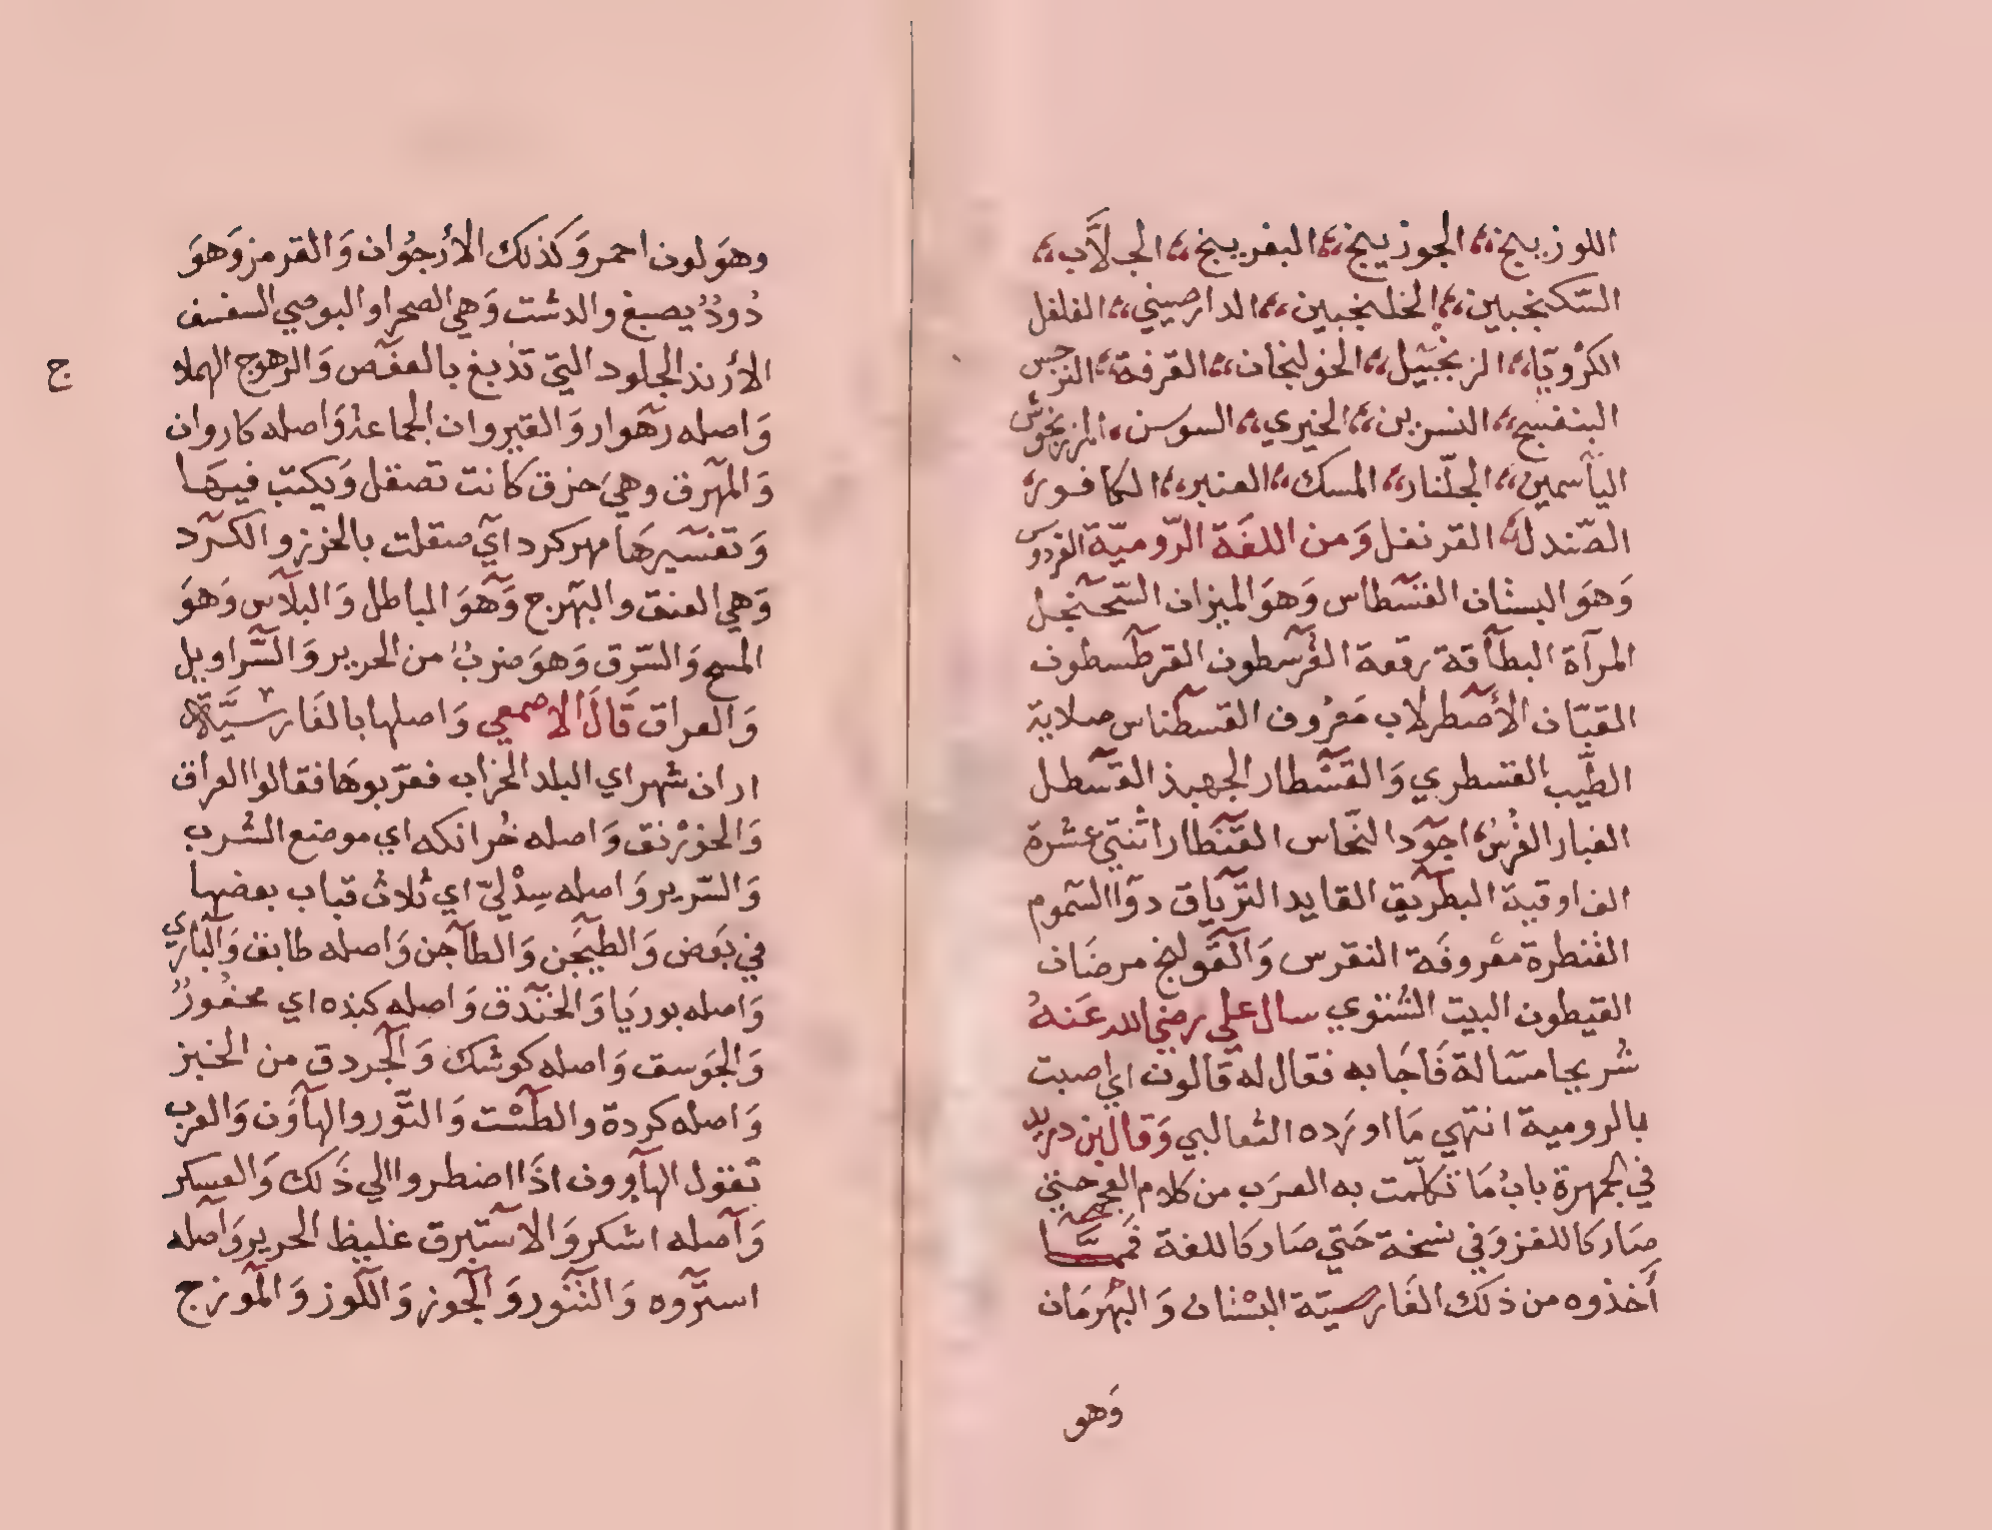 اللوزينج الجوزينج البفرينج الجلَّاب
السّكنجبين الخلنجبين الدارصيني الفلفل
الكرْويَّا الزنجبيل الخولنجان القرفة النرجس
البنفسج النسرين الخيري السوسن المرزنجوش
الياسمين الجلّنار المسك العنبر الكافور
الصّندل القرنفل وَمن اللغَة الرّوميّة الفردوس
وَهوَ البستان القسْطاس وَهوَ الميزان السّجنجل
المرآة البطآقة رقعة القرسطون القرطسطون
القبّان الأصطرلاب مَعرُوف القسطناس صلاية
الطّيب القسطري وَالقسْطار الجهبذ القسطل
الغبار القُبرُس اجوَد النّحاس القنطار اثنتي عشرة
الف اوقية البطريق القايد الترياق دوَا السّموم
القنطرة معروفَة النقرس وَالقولنج مرضَان
القيطون البيت الشتوي سال علي رضي الله عَنهُ
شُريحا مسَالة فَاجَابه فقال له قالون اي اصبت
بالرومية انتهي مَا اورَده الثعالبي وَقال ابن دريد
في الجمهرة بابُ مَا تكلّمت به العرَب من كلام العجم حتي
صَار كَاللغز وَفي نسخة حَتي صَار كَاللغة فَمِمَّا
أَخذوه من ذلك الفَارسيّة البسْتان وَالبهْرَمَان
وَهو
وهوَ لون احمر وَكذلك الأرجُوان وَالقرمز وَهوَ
دُودٌ يصبغ والدشت وَهي الصحرا والبوصي السفينة
الأرندج الجلود التي تدبغ بالعفص وَالرهوج الهملاج
وَاصله رَهوار وَالقيروان الجماعة وَاصله كاروان
وَالمهرق وهيَ خرق كَانت تصقل وَيكتب فيهَا
وَتفسيرهَا مهر كرد اي صقلت بالخرز والكرد
وَهي العنق والبهرج وَهوَ الباطل وَالبلاس وَهوَ
المسح وَالسّرق وَهوَ ضربٌ من الحرير وَالسّراويل
وَالعراق قَالَ الاصمعي وَاصلها بالفَارسيَّة
اران شهر اي البلد الخراب فعرّبوهَا فقالوا العراق
وَالخورْنق وَاصله خُرانكه اي موضع الشرب
وَالسّرير وَاصله سِدْليّ اي ثلاث قباب بعضها
في بَعض وَالطيجَن وَالطاجن وَاصله طابق وَالباري
وَاصله بوريَا وَالخندق وَاصله كنده اي محفُورٌ
وَالجَوسق وَاصله كوشك وَالجردق من الخبز
وَاصله كردة والطسْت وَالتّور والهاوَن وَالعرب
تقول الهاوون اذَا اضطروا الي ذَلك وَالعسكر
وَاصله اشكر وَالاستبرق غليظ الحرير وَاصله
استرَوه وَالتنّور وَالجوز وَاللوز وَالموزج